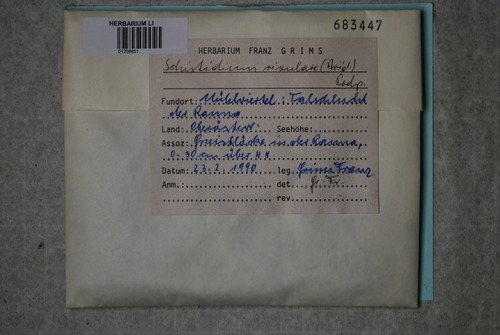 HERBARIUM LI
683447
HERBARIUM FRANZ GRIMS
Schistidium rivulare (Brid.)
Podp.
Fundort: Mühlviertel: Talschlucht
der Ranna
Land: Oberösterr. Seehöhe:
Assoz: Gneisblöcke in der Ranna,
0-30 cm über
Datum: 23.2.1990 leg. Grims Franz
Anm.: det. Gr. Fr.
rev.